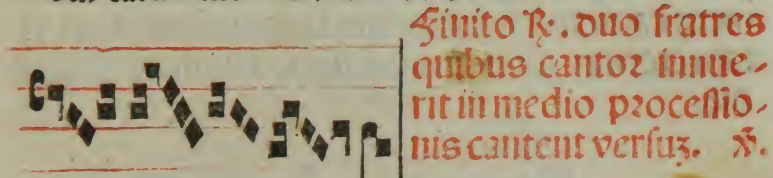 Finito ℟. duo fratres
quibus cantoꝛ innue⸗
rit in medio pꝛoceſſio⸗
nis cantent verſuʒ. ℣.